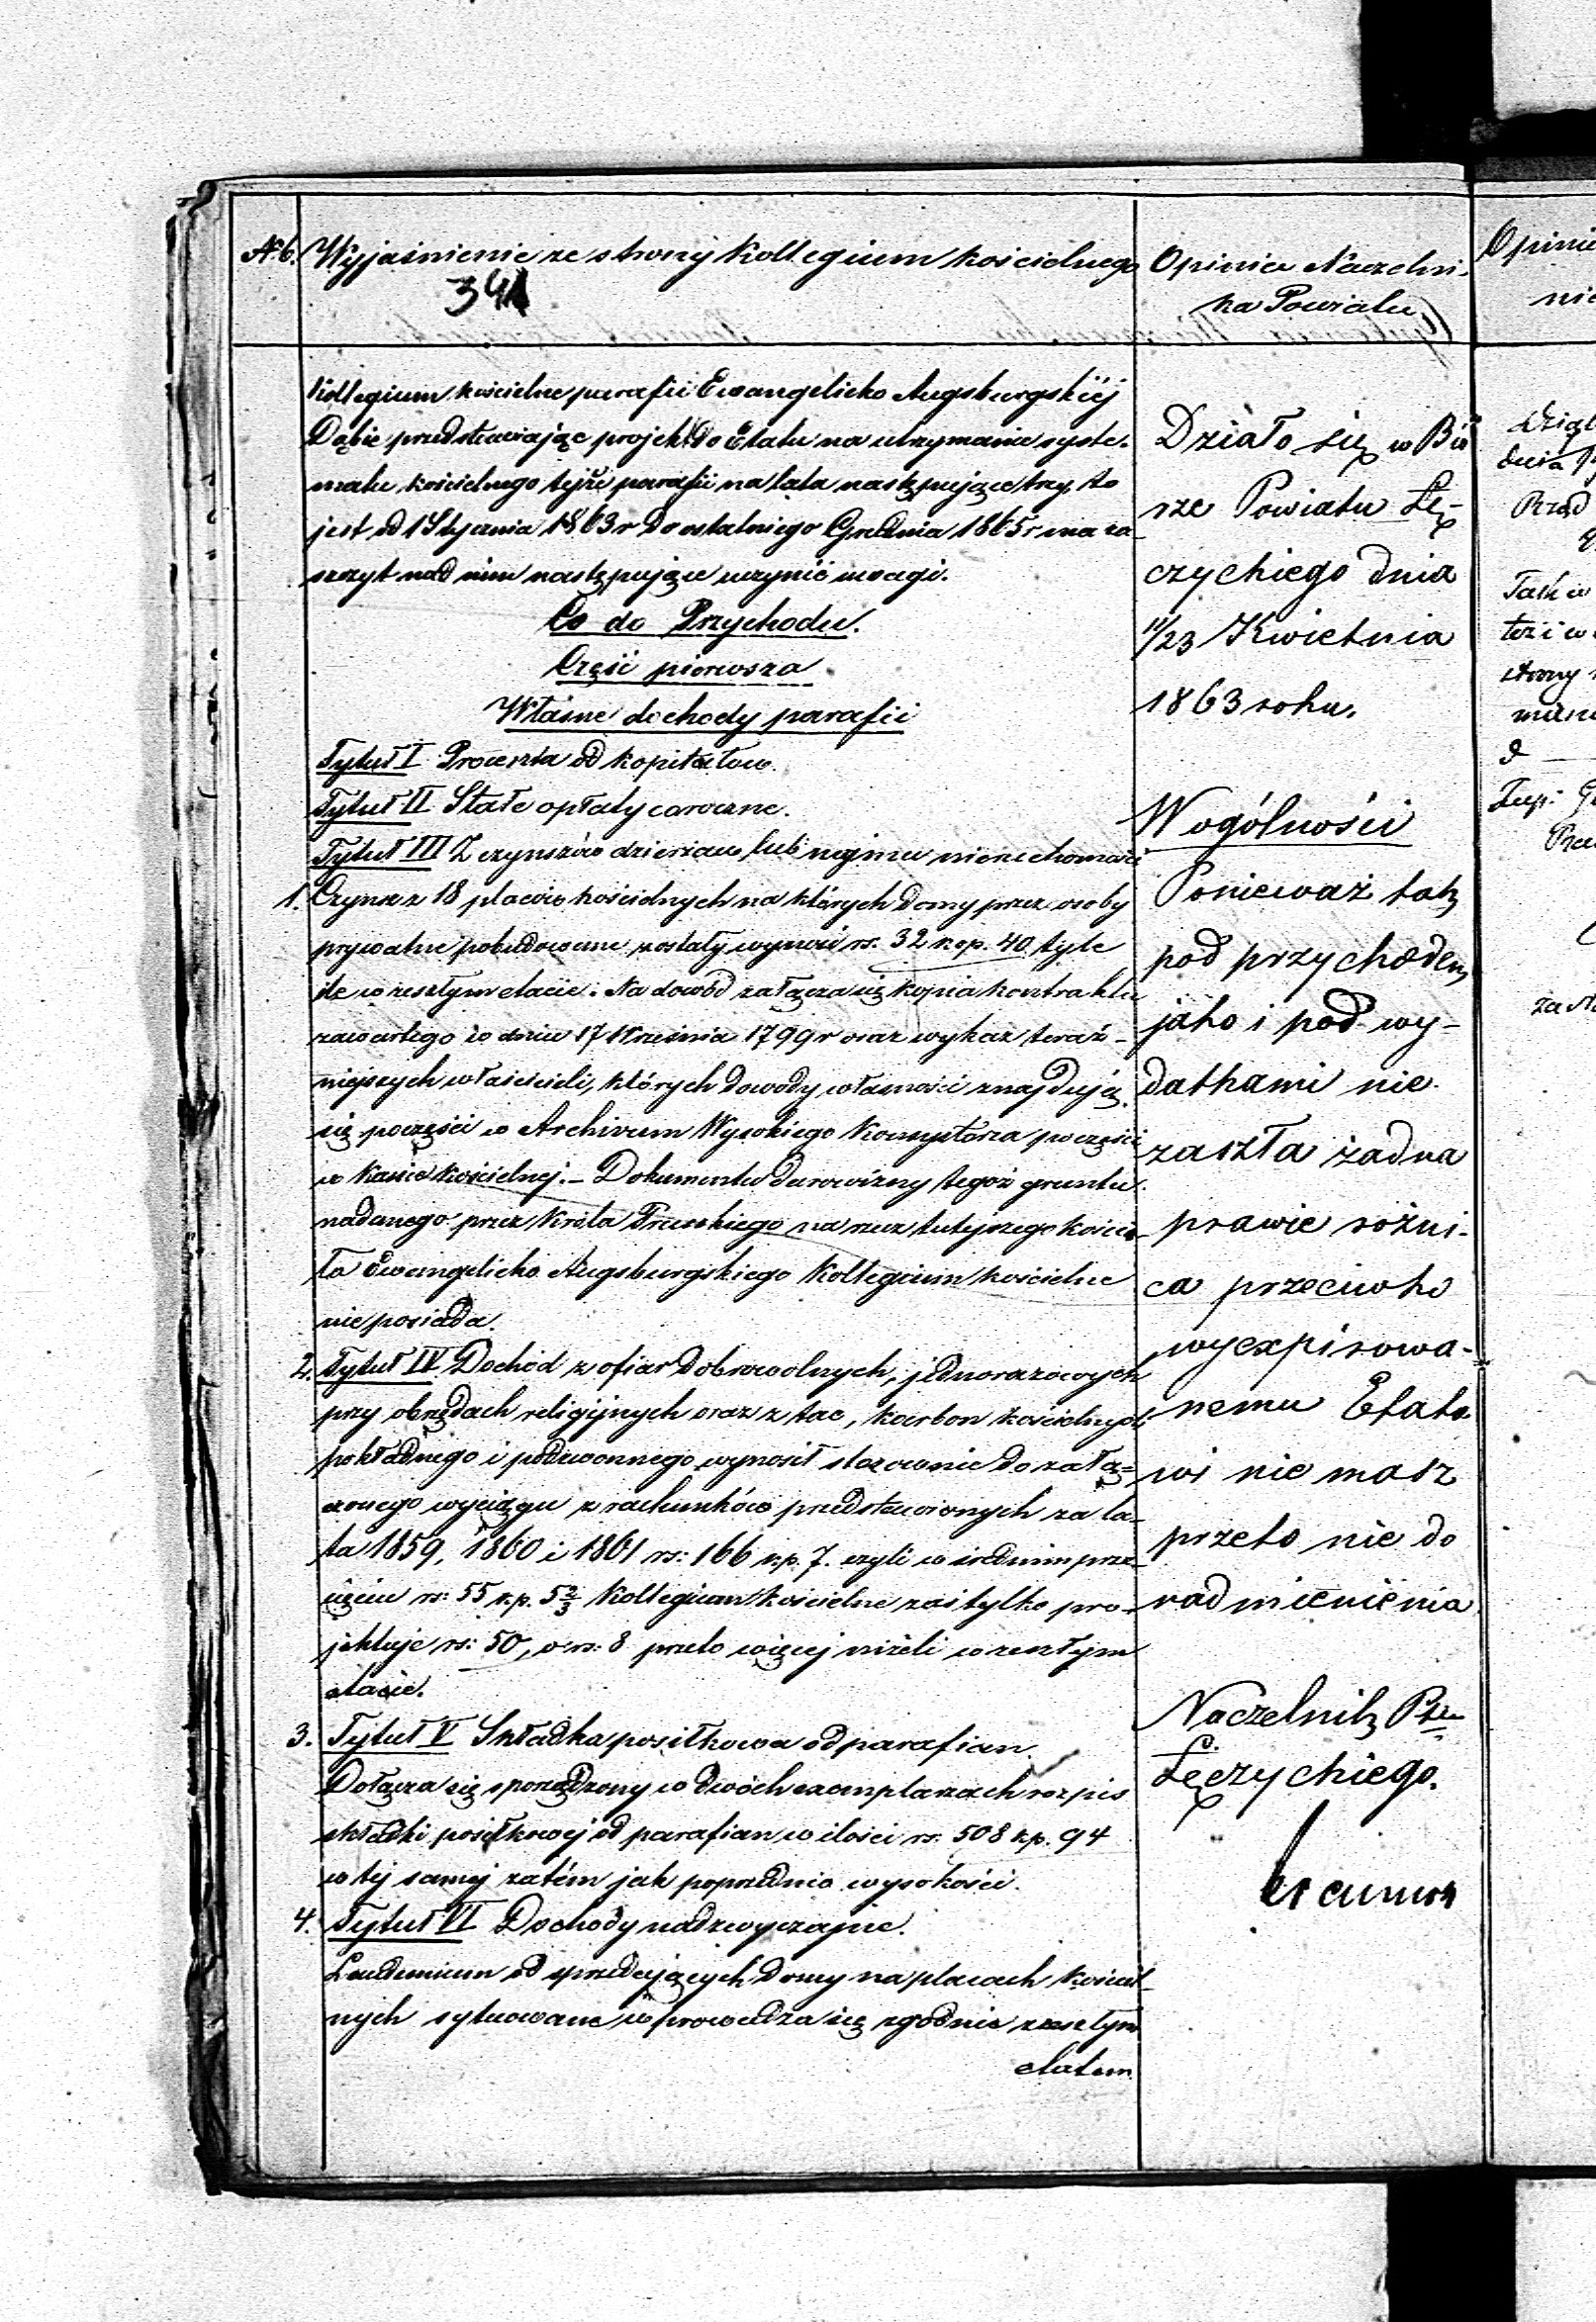 № b. Wyjaśnienie ze strony Kollegium kościelnego
341
Kollegium kościelne parafii Ewangelicko Augsburgskiéj
Dąbie przedstawiając projekt do Etatu na utrzymanie syste-
matu kościelnego tejże parafii na lata następujące trzy, to
jest od 1 Stycznia 1863 r do ostatniego Grudnia 1865 r ma za-
szczyt nad nim następujące uczynić uwagi.
Co do Przychodu.
Część pierwsza
Własne dochody parafii
Tytuł I Procenta od kapitałów.
Tytuł II Stałe opłaty coroczne.
Tytuł III Z czynszów dzierżaw lub najmu nieruchomości
1. Czynsz z 18 placów kościelnych na których domy przez osoby
prywatne pobudowane zostały wynosi rs. 32 kop. 40 tyle
ile w zeszłym etacie. Na dowód załącza się kopia kontraktu
zawartego w dniu 17 Września 1799 r oraz wykaz teraź-
niejszych właścicieli, których dowody własności znajdują
się poczęści w Archivum Wysokiego Konsystorza poczęści
w kasie kościelnej. – Dokumentu darowizny tegoż gruntu
nadanego przez Króla Pruskiego na rzecz tutejszego kościo-
ła Ewangelicko Augsburgskiego Kollegium kościelne
nie posiada.
2. Tytuł IV Dochód z ofiar dobrowolnych, jednorazowych
przy obrzędach religijnych oraz z tac, karbon kościelnych
pokładnego i podzwonnego wynosił stosownie do załą-
czonego wyciągu z rachunków przedstawionych za la-
ta 1859, 1860 i 1861 rs: 166 kp. 7. czyli w średnim prze-
cięciu rs: 55 kp. 5⅔ Kollegium kościelne zaś tylko pro-
jektuje rs: 50, o rs: 8 przeto więcej niżeli w zeszłym
etacie.
3. Tytuł V Składka posiłkowa od parafian.
Dołącza się sporządzony w dwóch exemplarzach rozpis
składki posiłkowej od parafian w ilości rs: 508 kp. 94
w tej samej zatém jak poprzednio wysokości.
4. Tytuł VI Dochody nadzwyczajne.
Laudemium od sprzedających domy na placach kościel-
nych sytuowane wprowadza się zgodnie z zeszłym
etatem
Opinia Naczelni-
ka Powiatu
Działo się w Biu
rze Powiatu Łę-
czyckiego dnia
11/23 Kwietnia
1863 roku.
W ogólności
Ponieważ tak
pod przychodem
jako i pod wy-
datkami nie
zaszła żadna
prawie różni-
ca przeciwko
wyexpirowa-
nemu Etato
wi nie masz
przeto nic do
nadmienienia
Naczelnik Ptu
Łęczyckiego.
Opinia
nie
Rząd
Tak w
też i w
strony